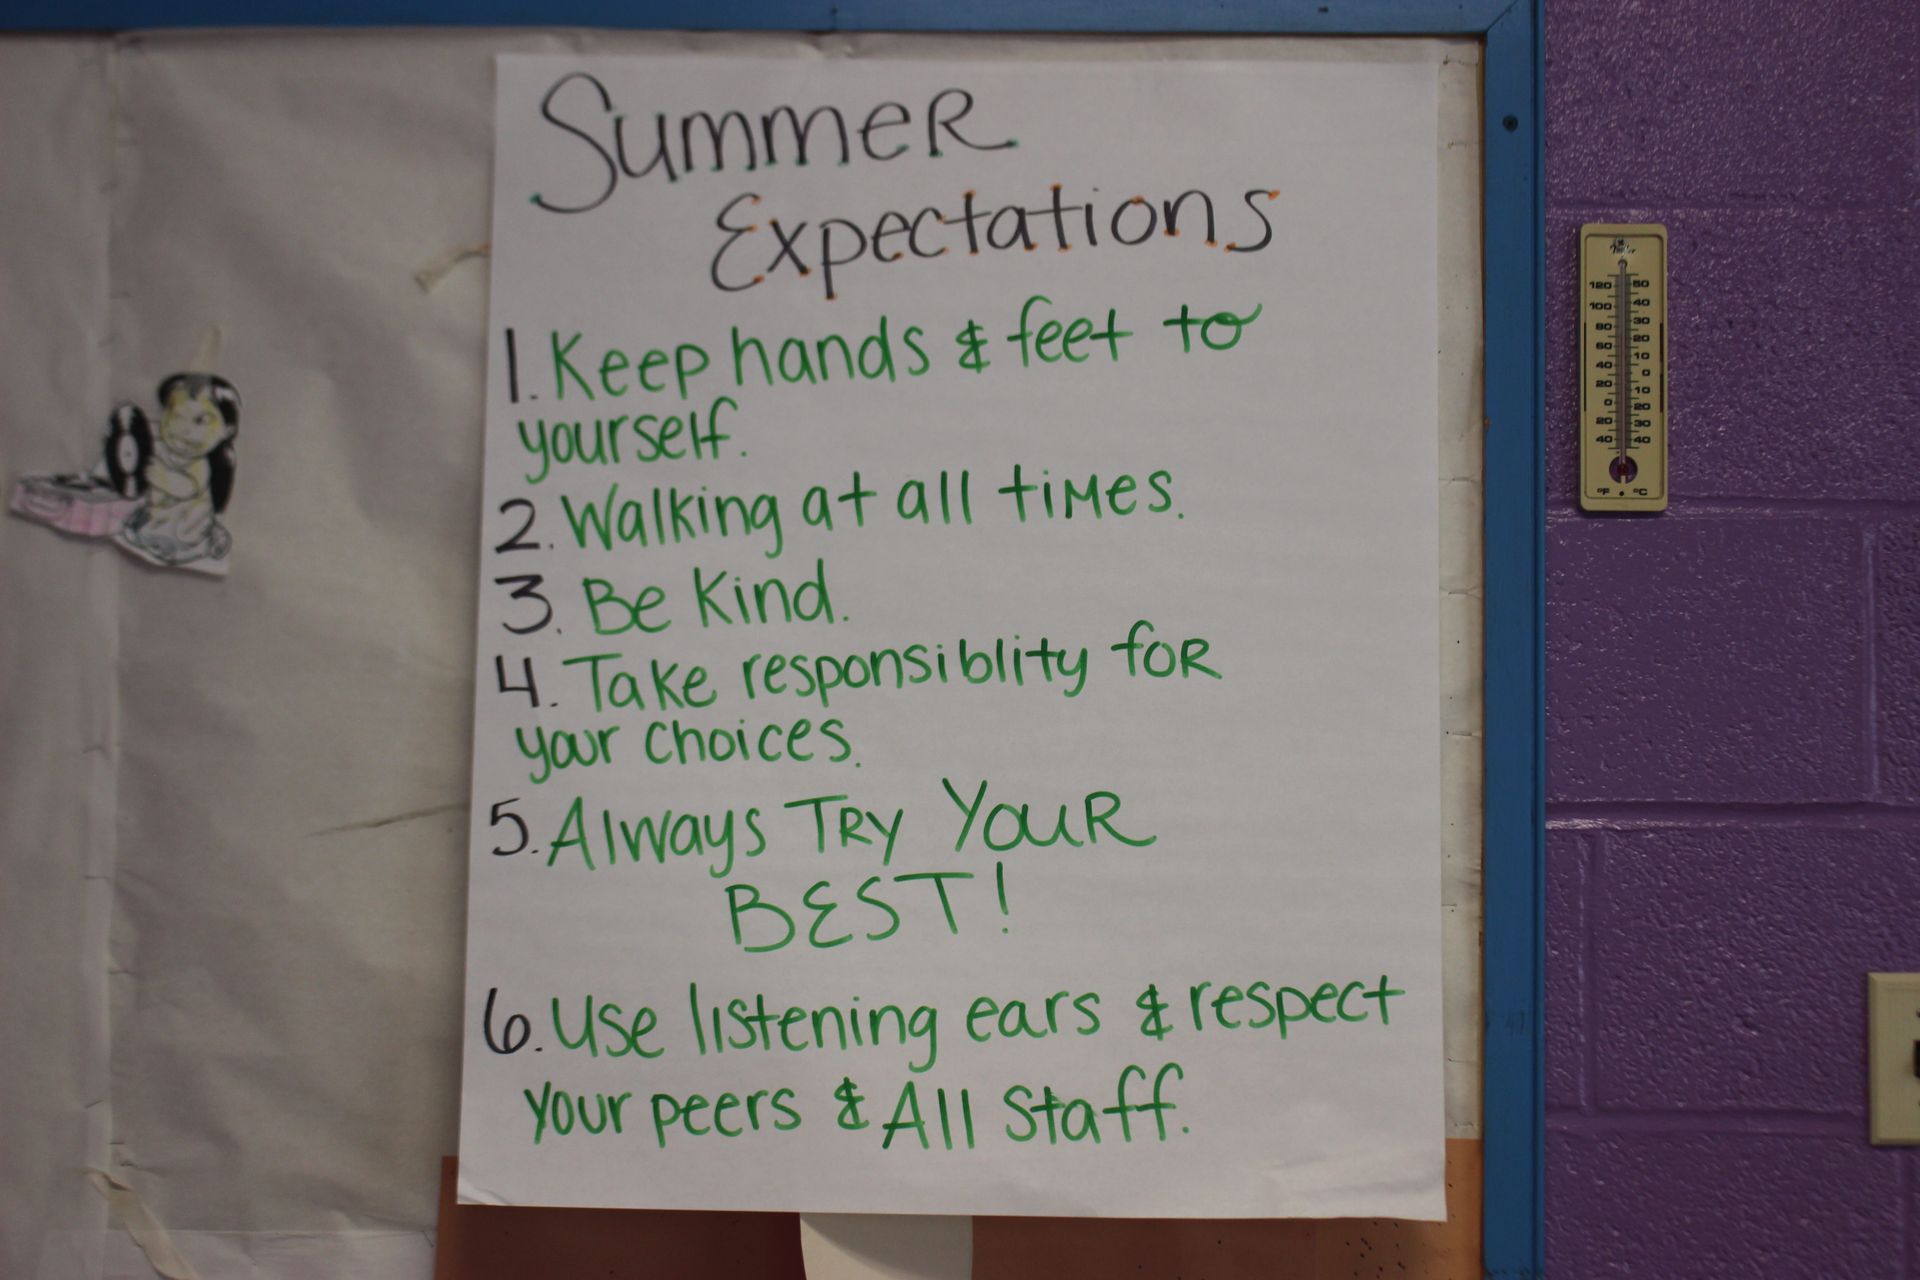 Summer
Expectations
1. Keep hands & feet to
yourself.
2. Walking at all times.
3. Be Kind.
4. Take responsiblity for
your choices.
5. Always TRY YOUR
BEST!
6. Use listening ears & respect
your peers & All staff.
120 50
100 40
80 30
60 20
40 10
20 0
0 10
20 20
40 30
40
°F °C